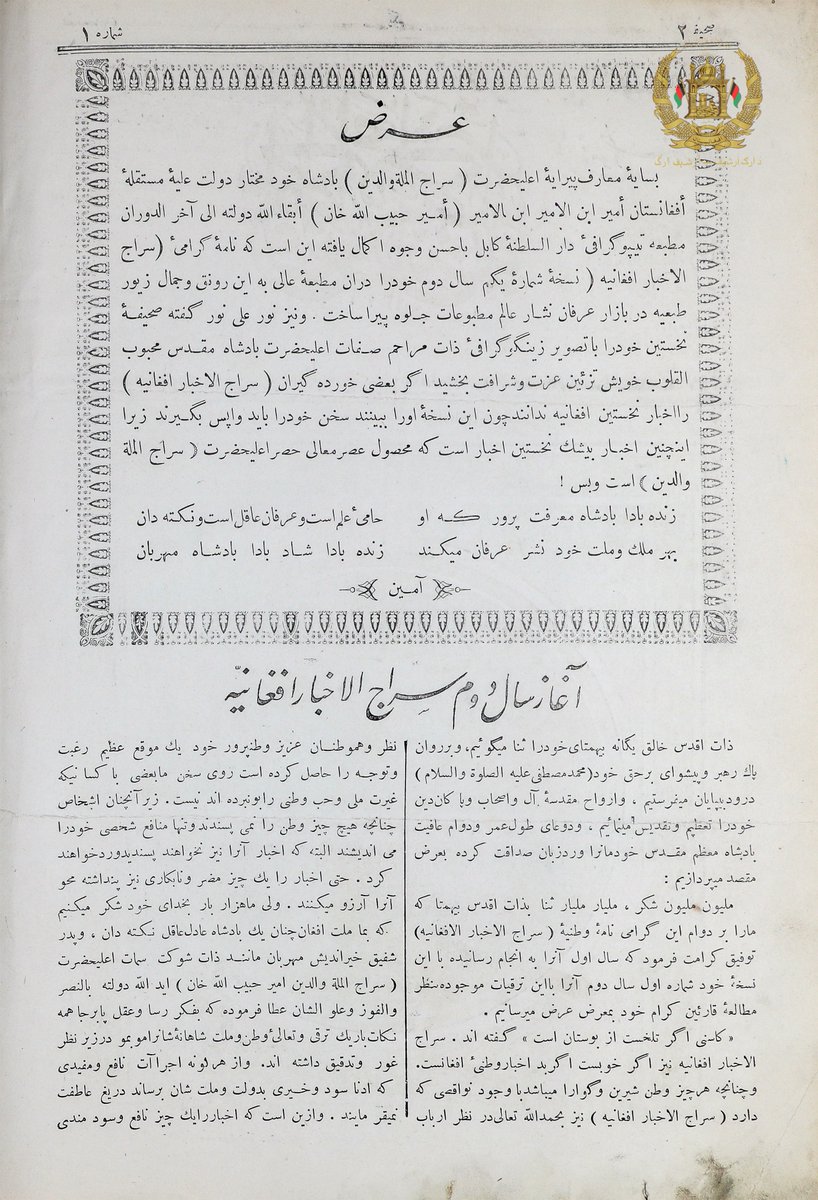 صحیفهٔ ۲
شماره ۱
عرض
بسایهٔ معارف پیرایهٔ اعلیحضرت ( سراج الملة والدین ) بادشاه خود مختار دولت علیهٔ مستقلهٔ
أفغانستان أمیر ابن الامیر ابن بالامیر ( أمیر حبیب الله خان ) أبقاءالله دولته الی آخر الدوران
مطبعه تیپوگرافیٔ دار السلطنهٔ کابل باحسن وجوه اکمال یافته این است که نامهٔ گرامیٔ (سراج
الاخبار افغانیه ( نسخهٔ شمارهٔ یکم سال دوم خودرا دران مطبعهٔ عالی به این رونق وجمال زیور
طبعیه در بازار عرفان نثار عالم مطبوعات جلوه پیرا ساخت . ونیز نور علی نور گفته صحیفهٔ
نخستین خودرا با تصویر زینگوگرافیٔ ذات مراحم صفات اعلیحضرت بادشاه مقدس محبوب
القلوب خویش تزئین عزت وشرافت بخشید اگر بعضی خورده گیران ( سراج الاخبار افغانیه )
را اخبار نخستین افغانیه ندانند چون این نسخهٔ اورا ببینند سخن خودرا باید واپس بگیرند زیرا
اینچنین اخبار بیشك نخستین اخبار است که محصول عصر معالی حصر اعلیحضرت ( سراج الملة
والدین ) است وبس !
زنده بادا بادشاه معرفت پرور که او    حامیٔ علم است و عرفان عاقل است و نکته دان
بهر ملك وملت خود نشر عرفان میکند    زنده بادا شاد بادا بادشاه مهربان
آمین
آغاز سال دوم سراج الاخبار افغانیّه
ذات اقدس خالق یگانه بیهمتای خودرا ثنا میگوئیم، و برروان
پاك رهبر وپیشوای برحق خود (محمد مصطفی علیه الصلوة والسلام )
درود بیپایان میفرستیم ، وارواح مقدسهٔ آل واصحاب وپا کان دین
خودرا تعظیم وتقدیس مینمائیم ، ودعای طول عمر ودوام عافیت
پادشاه معظم مقدس خودمانرا وردزبان صداقت کرده بعرض
مقصد میپردازیم :
ملیون ملیون شکر ، ملیار ملیار ثنا بذات اقدس بیهمتا که
مارا بر دوام این گرامی نامهٔ وطنیهٔ ( سراج الاخبار الافغانیه)
توفیق کرامت فرمود که سال اول آنرا به انجام رسانیده با این
نسخهٔ خود شماره اول سال دوم آنرا بااین ترقیات موجوده منظر
مطالعهٔ قارئین کرام خود بمعرض عرض میرسانیم .
« کاسنی اگر تلخست از بوستان است » گفته اند . سراج
الاخبار افغانیه نیز اگر خوبست اگربد اخبار وطنیٔ افغانست.
وچنانچه هرچیز وطن شیرین وگوارا میباشد با وجود نواقصی که
دارد ( سراج الاخبار افغانیه ) نیز بحمدالله تعالی در نظر ارباب
نظر وهموطنان عزیز وطنپرور خود یك موقع عظیم رغبت
وتوجه را حاصل کرده است روی سخن مابعضی با کسا نیکه
غیرت ملی وحب وطنی رابونبرده اند نیست . زیر آنچنان اشخاص
چنانچه هیچ چیز وطن را نمی پسندند وتنها منافع شخصی خودرا
می اندیشند البته که اخبار آنرا نیز نخواهند پسندیدوردخواهند
کرد . حتی اخبار را یك چیز مضر ونابکاری نیز پنداشته محو
آنرا آرزو میکنند . ولی ماهزار بار بخدای خود شکر میکنیم
که بما ملت افغان چنان یك بادشاه عادل عاقل نکته دان ، وپدر
شفیق خیراندیش مهربان مانند ذات شوکت سمات اعلیحضرت
( سراج الملة والدین امیر حبیب الله خان ) اید الله دولته بالنصر
والفوز وعلو الشان عطا فرموده که بفکر رسا وعقل پابرجا همه
نکات باریك ترقی وتعالیٔ وطن وملت شاهانهٔ شانرا موبمو درزیر نظر
غور وتدقیق داشته اند. واز هر گونه اجراآت نافع ومفیدی
که ادنا سود وخیری بدولت وملت شان برساند دریغ عاطفت
نمیفر مایند . وازین است که اخبار رایك چیز نافع وسود مندی